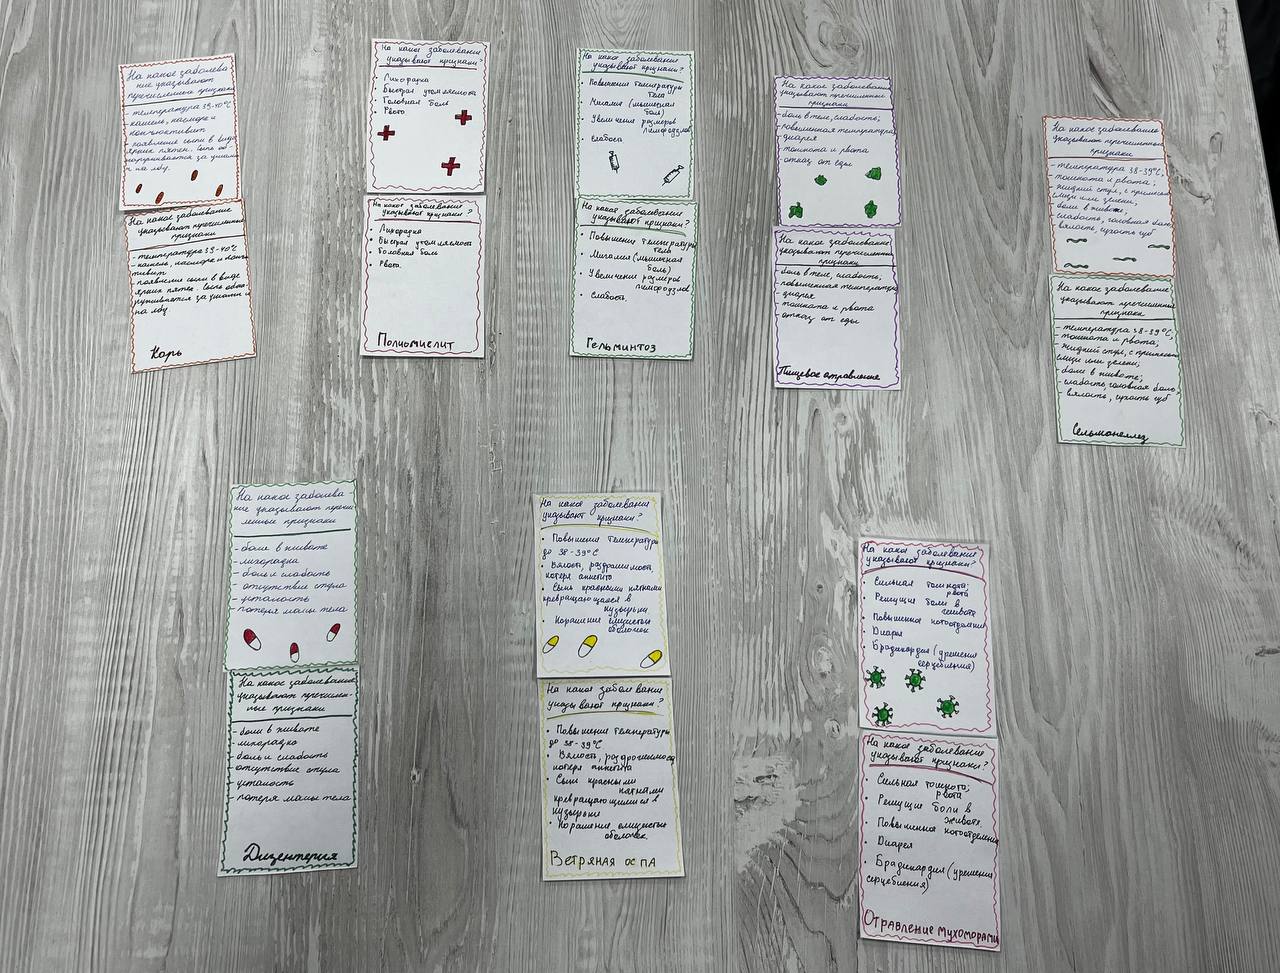 На какое заболева-
ние указывают
перечисленные признаки
- температура 39-40°C
- кашель, насморк и
конъюктивит
- появление сыпи в виде
ярких пятен. Сыпь об-
наруживается за ушами
и на лбу.
На какое заболевание
указывают перечисленные
признаки
- температура 39-40°C
- кашель, насморк и
тивит
- появление сыпи в виде
ярких пятен. Сыпь обна-
руживается за ушами и
на лбу
Корь
На какое заболевание
указывают признаки?
• Лихорадка
• Быстрая утомляемость
• Головная боль
• Рвота
На какое заболевание
указывают признаки?
• Лихорадка
• Быстрая утомляемость
• Головная боль
• Рвота.
Полиомиелит
На какое заболевание
указывают признаки?
• Повышение температуры
тела
• Миалия (мышечная
боль)
• Увеличения размеров
лимфоузлов
• слабость
На какое заболевание
указывают признаки?
• Повышение температуры
тела
• Миалия (мышечная
боль)
• Увеличения размеров
лимфоузлов
• Слабость,
Гельминтоз
На какое заболевание
указывают перечисленные
признаки
- боль в теле, слабость;
- повышенная температура
- диарея
- тошнота и рвота
- отказ от еды
На какое заболевание
указывают перечисленные
признаки
- боль в теле, слабость,
- повышенная температура
- диарея
- тошната и рвота
- отказ от еды
Пищевое отравление
На какое заболевание
указывают перечисленные
признаки
- температура 38-39°C,
- тошнота и рвота;
- жидкий стул, с примесью
слизи или зелени,
- боли в животе,
- слабость, головная боль
- вялость, сухость губ
На какое заболевание
указывают перечисленные
признаки
- температура 38-39°C,
- тошнота и рвота;
- жидкий стул, с примесью
слизи или зелени;
- боли в животе;
- слабость головная боль
- вялость, сухость губ
Сельманеллез
На какое заболева-
ние указывают перечис-
ленные признаки
- боли в животе
- лихорадка
- боль и слабость
- отсутствие стула
- усталость
- потеря массы тела
На какое заболевание
указывают перечислен-
ные признаки
- боли в животе
- лихорадка
- боль и слабость
- отсутствие стула
- усталость
- потеря массы тела
Дизентерия
На какое заболевание
указывают признаки?
• Повышение температуры
до 38-39°C
• Вялость, раздражимость,
потеря аппетита
• Сыпь красными пятнами
превращающаяся в
пузырьки
• Поражение слизистых
оболочек
На какое заболевание
указывают признаки?
• Повышение температуры
до 38-39°C
• Вялость,
потеря аппетита
• Сыпи красными
пятнами
превращающимися в
пузырьки
• Поражение слизистых
оболочек.
Ветряная оспа
На какое заболевание
указывают признаки?
• Сильная тошнота;
рвота
• Режущие боли в
животе
• Повышенная потоотделения
• Диарея
• Брадикардия (урешения
серцебиения)
На какое заболевание
указывают признаки?
• Сильная тошнота;
рвота
• Режущие боли в
животе
• Повышенная потоотделения
• Диарея
• Брадикардия (урешения
серцебиения)
Отравление мухоморами